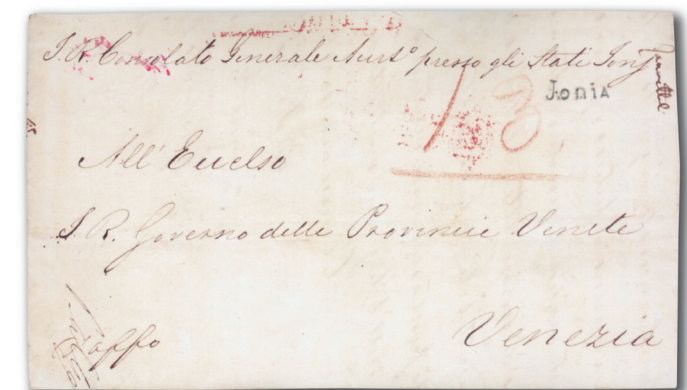 I. R. Consolato Generale Aust.º presso gli Stati Jonj
JoniA
All' Eccelso
I. R. Governo delle Provincie Venete
Venezia